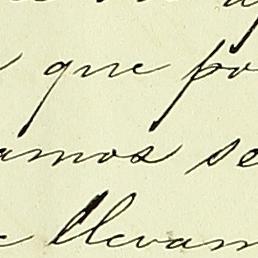 que po
amos se
llevam